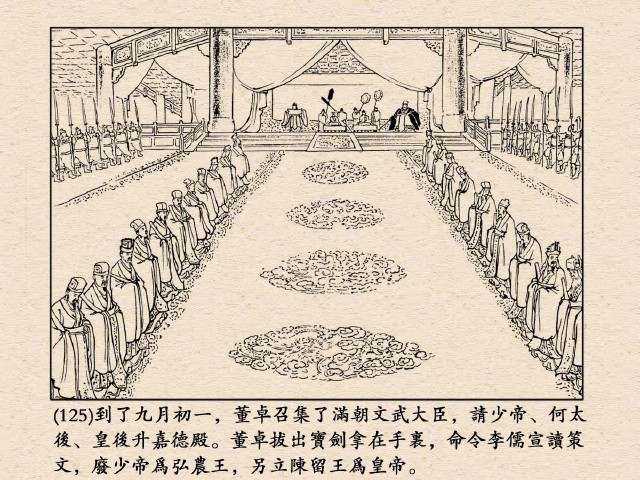 (125)到了九月初一，董卓召集了滿朝文武大臣，請少帝、何太
後、皇後升嘉德殿。董卓拔出寶劍拿在手裏，命令李儒宣讀策
文，廢少帝爲弘農王，另立陳留王爲皇帝。